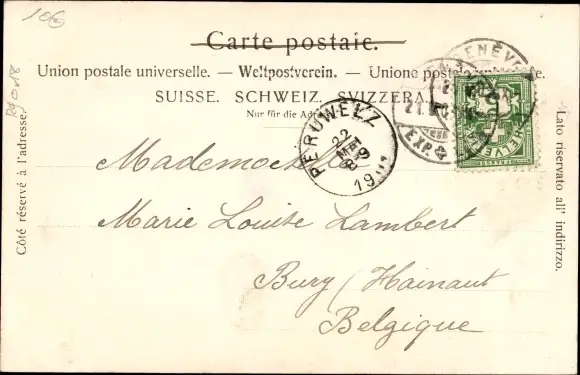 106
Carte postale.
Union postale universelle. — Weltpostverein. — Unione postale
SUISSE. SCHWEIZ. SVIZZERA.
Nur für die
Côté réservé à l'adresse.
Lato riservato all' indirizzo.
GENÈVE
EXP.
HELVETIA
PERUWELZ
22
MAI
8-9
19
Mademoiselle
Marie Louise Lambert
Bury / Hainaut
Belgique